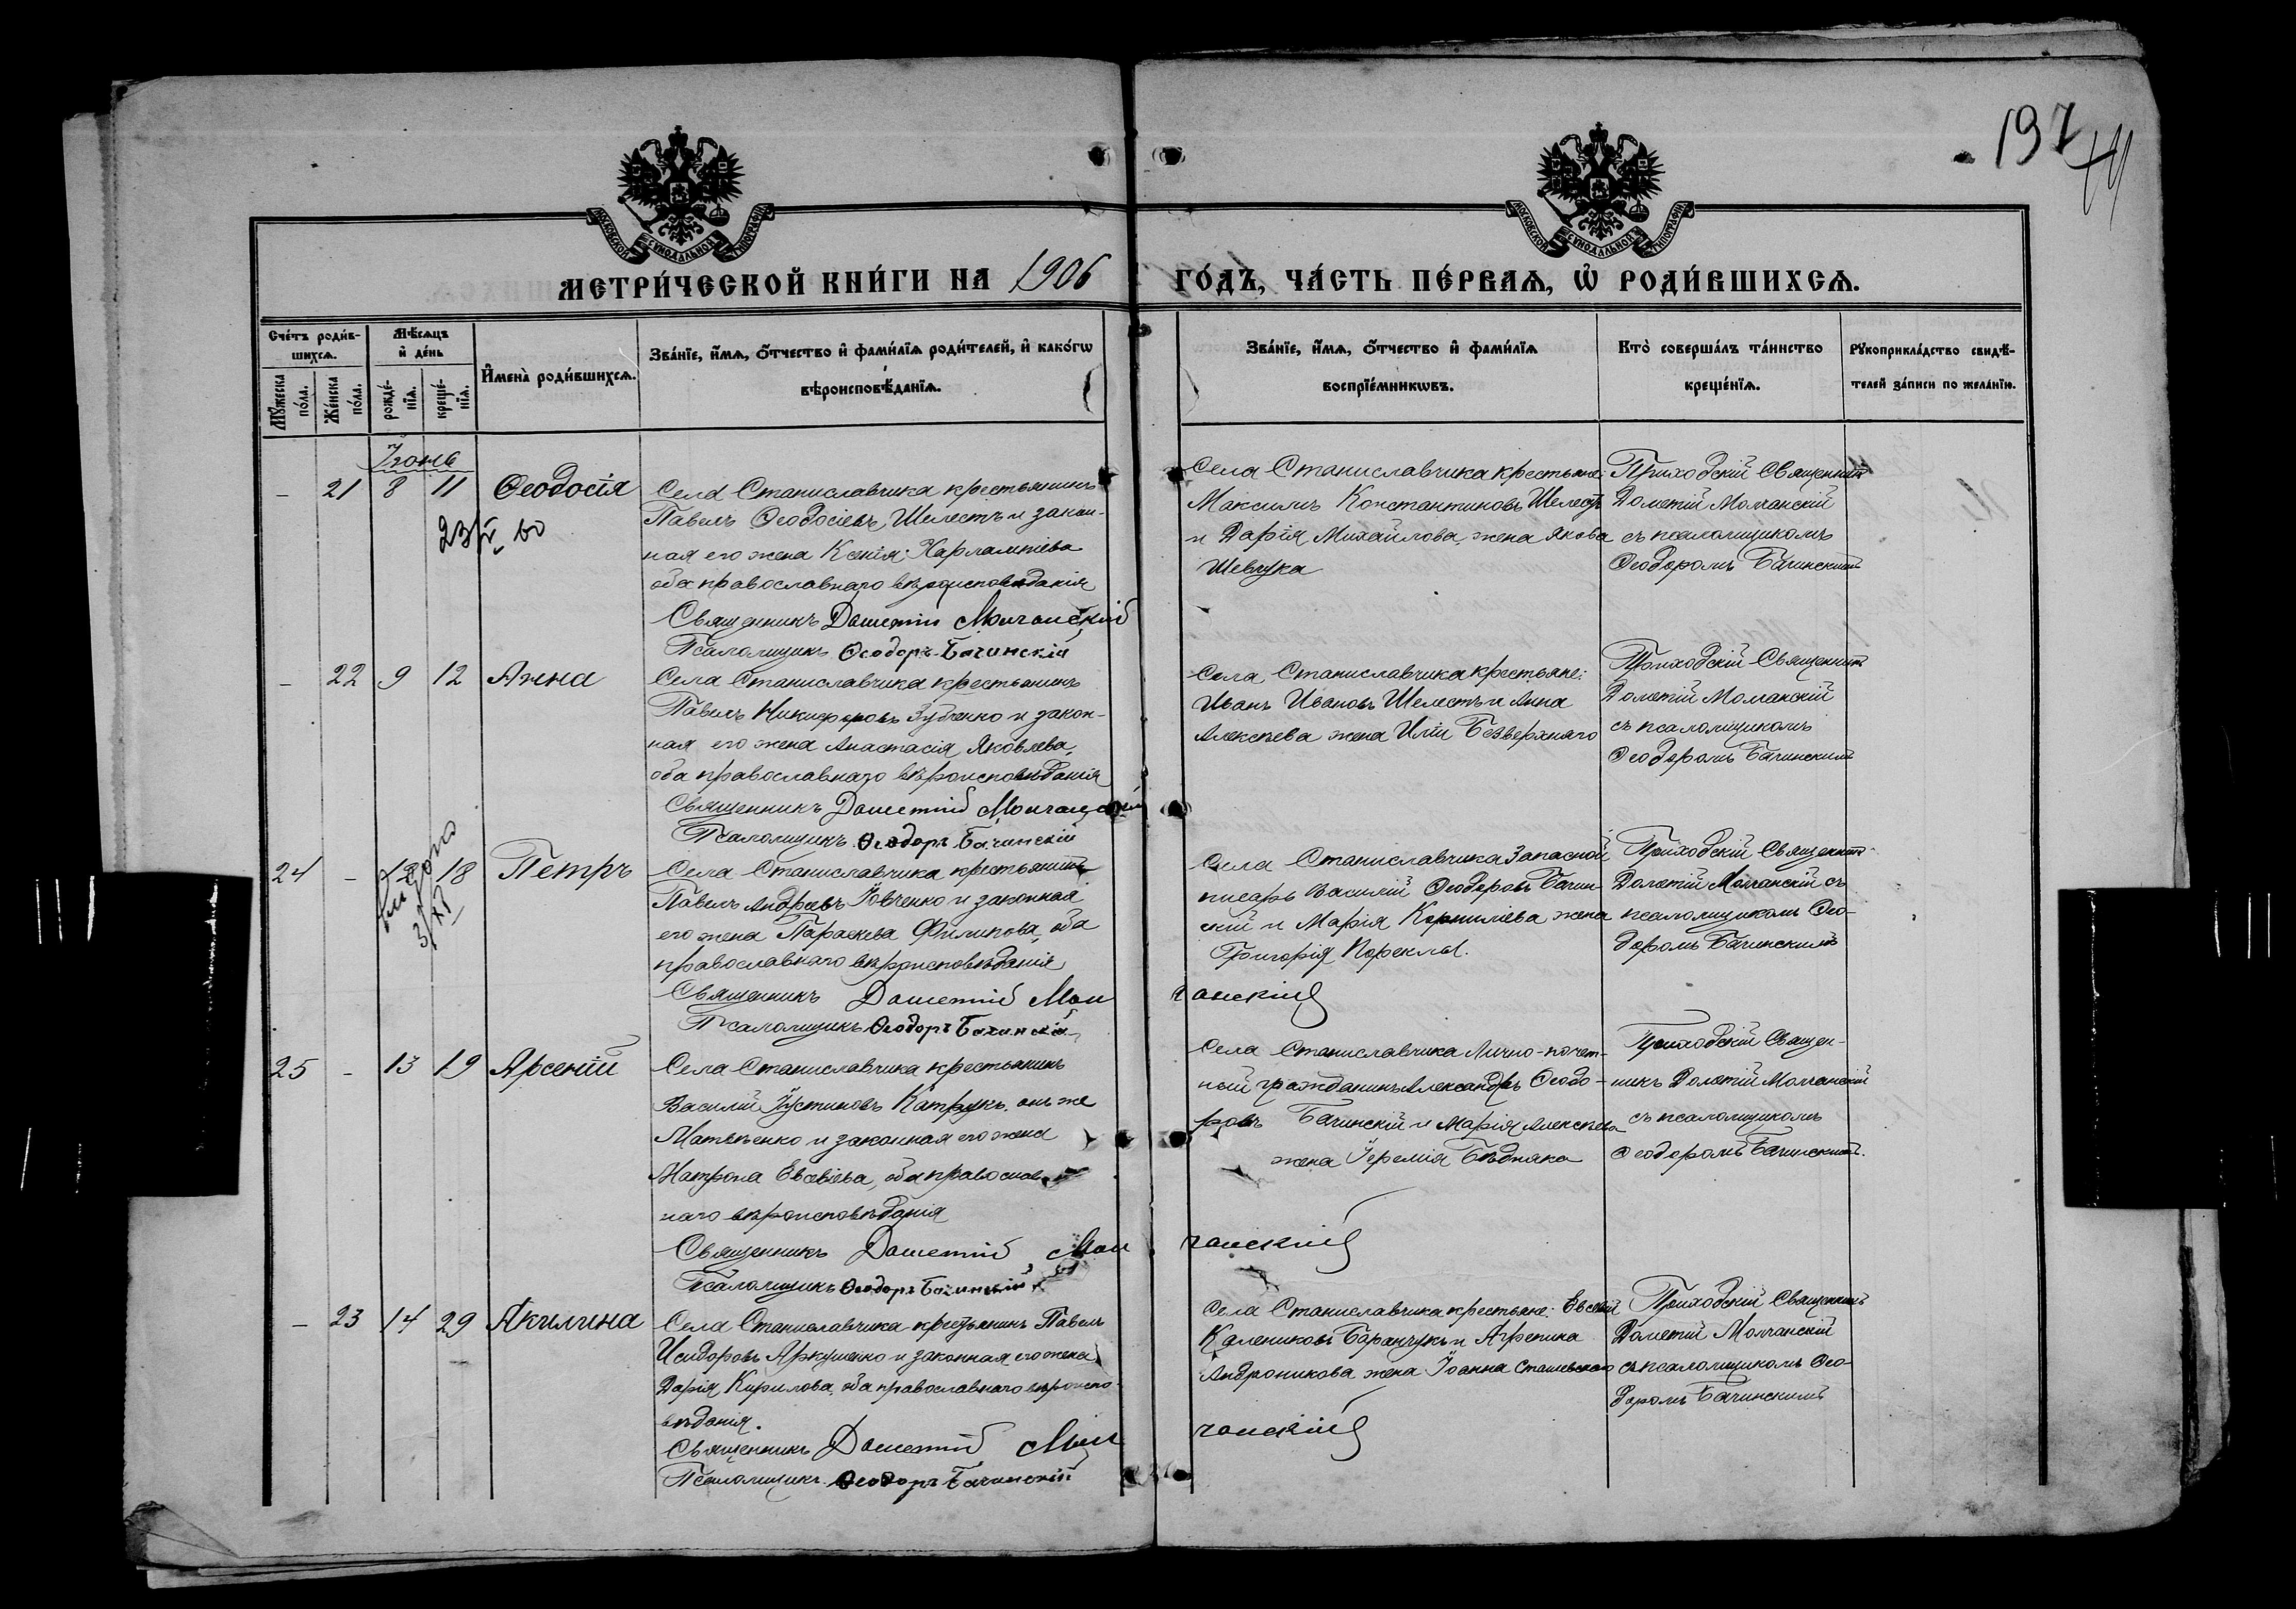 197
МОСКОВСКОЙ СѴНОДАЛЬНОЙ ТИПОГРАФІИ
МОСКОВСКОЙ СѴНОДАЛЬНОЙ ТИПОГРАФІИ
МЕТРИ́ЧЕСКОЙ КНИ́ГИ НА 1906 ГО́ДЪ, ЧА́СТЬ ПЕ́РВАѦ, Ѡ҆ РОДИ́ВШИХСѦ.
Сче́тъ роди́в-
шихсѧ.
Мꙋ́жеска по́ла.
Же́нска по́ла.
Мѣ́сѧцъ
и҆ де́нь
рожде́-
нїѧ.
креще́-
нїѧ.
И҆мена̀ роди́вшихсѧ.
Зва́нїе, и҆́мѧ, ѻ҆́тчество и҆ фами́лїѧ роди́телей, и҆ како́гѡ
вѣроисповѣ́данїѧ.
Зва́нїе, и҆́мѧ, ѻ҆́тчество и҆ фами́лїѧ
воспрїе́мникѡвъ.
Кто̀ соверша́лъ та́инство
креще́нїѧ.
Рꙋкоприкла́дство свидѣ́-
телей за́писи по жела́нїю.
Іюнь
- 21 8 11 Ѳеодосія
Села Станиславчика крестьянинъ
Павелъ Ѳеодосіевъ Шелестъ и закон-
ная его жена Ксенія Харлампіева
оба православнаго вѣроисповѣданія
Священникъ Дометій Молчанскій
Псаломщикъ Ѳеодоръ Бачинскій
Села Станиславчика крестьяне:
Максимъ Константиновъ Шелестъ
и Дарія Михайлова, жена Якова
Шевчука
Приходскій Священникъ
Дометій Молчанскій
съ псаломщикомъ
Ѳеодоромъ Бачинскимъ
- 22 9 12 Анна
Села Станиславчика крестьянинъ
Павелъ Никифоровъ Зубченко и закон-
ная его жена Анастасія Яковлева,
оба православнаго вѣроисповѣданія
Священникъ Дометій Молчанскій
Псаломщикъ Ѳеодоръ Бачинскій
Села Станиславчика крестьяне:
Иванъ Ивановъ Шелестъ и Анна
Алексѣева жена Иліи Безверхняго
Приходскій Священникъ
Дометій Молчанскій
съ псаломщикомъ
Ѳеодоромъ Бачинскимъ
24 - 12 18 Петръ
Села Станиславчика крестьянинъ
Павелъ Андреевъ Іовченко и законная
его жена Параскева Филипова, оба
православнаго вѣроисповѣданія
Священникъ Дометій Молчанскій
Псаломщикъ Ѳеодоръ Бачинскій
Села Станиславчика Запасной
писарь Василій Ѳеодоровъ Бачин-
скій и Марія Корниліева жена
Григорія
Приходскій Священникъ
Дометій Молчанскій съ
псаломщикомъ Ѳео-
доромъ Бачинскимъ
25 - 13 19 Арсеній
Села Станиславчика крестьянинъ
Василій Іустиновъ Катрукъ онъ же
Матвѣенко и законная его жена
Матрона Евсевіева, оба православ-
наго вѣроисповѣданія
Священникъ Дометій Молчанскій
Псаломщикъ Ѳеодоръ Бачинскій
Села Станиславчика Лично-почет-
ный гражданинъ Александръ Ѳеодо-
ровъ Бачинскій и Марія Алексѣева
жена Іеремія Бѣдняка
Приходскій Священ-
никъ Дометій Молчанскій
съ псаломщикомъ
Ѳеодоромъ Бачинскимъ.
- 23 14 29 Акилина
Села Станиславчика крестьянинъ Павелъ
Исидоровъ Аркушенко и законная его жена
Дарія Кирилова, оба православнаго вѣроиспо-
вѣданія.
Священникъ Дометій Молчанскій
Псаломщикъ Ѳеодоръ Бачинскій
Села Станиславчика крестьяне: Евсевій
Калениковъ Баранчукъ и Агрепина
Андроникова жена Іоанна Сташевскаго
Приходскій Священникъ
Дометій Молчанскій
съ псаломщикомъ Ѳео-
доромъ Бачинскимъ